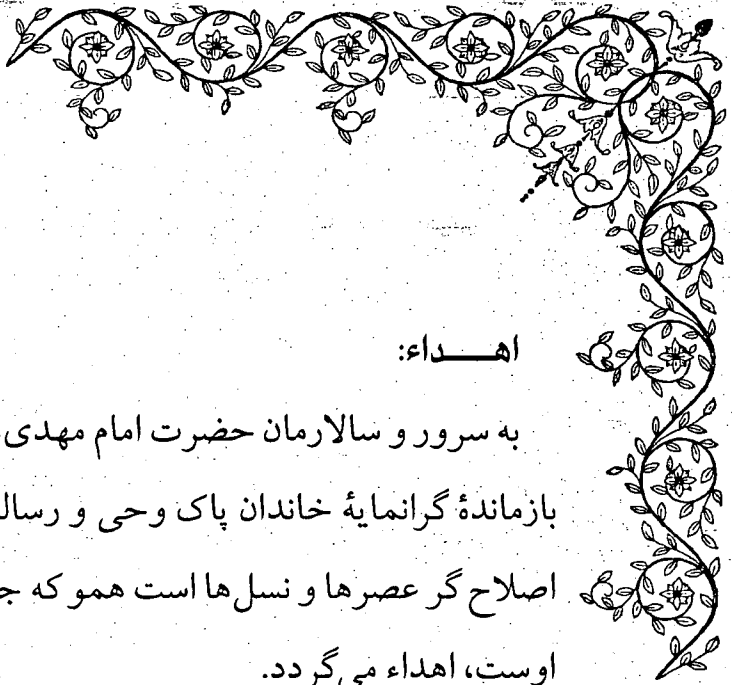 اهـــداء:
به سرور و سالارمان حضرت امام مهدی
بازماندهٔ گرانمایهٔ خاندان پاک وحی و
اصلاح گر عصرها و نسل‌ها است همو که
اوست، اهداء می‌گردد.